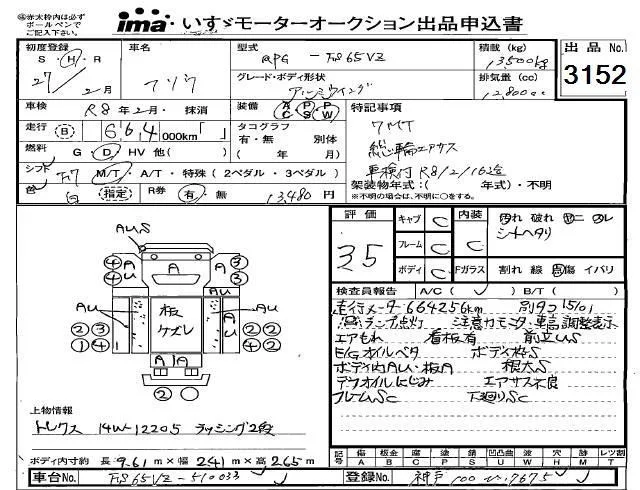 ※赤太枠内は必ず
ボールペンで
ご記入下さい。
ima いすゞモーターオークション出品申込書
出品 No.
3152
初度登録
S・H・R
27年 2月
車名
フソウ
型式
QPG - FS65VZ
グレード・ボディ形状
アルミウイング
積載 (kg)
13500kg
排気量 (cc)
12800cc
車検
R8年2月・抹消
装備
A P P
C S W
走行 B 664000km「 」
タコグラフ
有・無 別体
( 年 月)
燃料 G・D・HV 他( )
シフト F7 M/T・A/T・特殊(2ペダル・3ペダル)
色 白 (指定) R券 有・無 13,480円
特記事項
7MT
総輪エアサス
車検付 R8/2/16迄
架装物年式:( 年式)・不明
※不明の場合は、不明に○をする。
評価
3.5
キャブ C
フレーム C
ボディ C
内装 C
汚れ 破れ コゲ スレ
シートヘタリ
Fガラス 割れ 線 飛傷 イバリ
検査員報告 A/C( ) B/T( )
走行メーター664256km 別タコ1501
ランプ点灯 注意力モニタ・車高調整表示
エアもれ 看板有 前立US
E/Gオイルベタ ボディ枠S
ボディ内AU・板A 根太S
デフオイルにじみ エアサス不良
フレームSC 下廻りSC
AUS
④ A A ③
④ AU A U ③
AU AU
板
ケズレ
②③ ②②
①④ ④④
A A A
②
上物情報
トレクス 14W-12205 ラッシング2段
ボディ内寸約 長9.61m×幅2.41m×高2.65m
記号 傷 板金 腐 塗 錆 凹凸曲 波 穴 跡 レツ割
A B C P S U W H M T
車台No. FS65VZ-510033
登録No. 神戸 100 い 7675